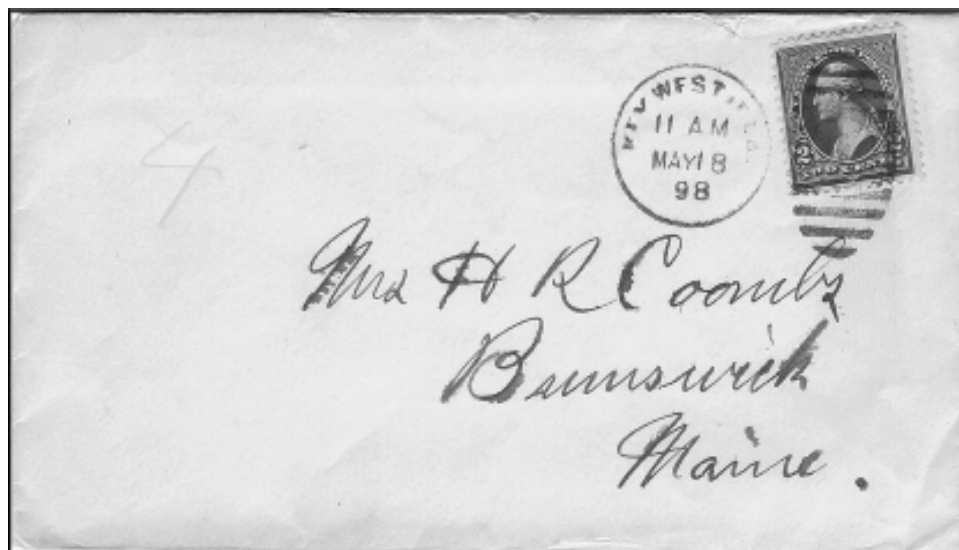 KEY WEST, FLA.
11 AM
MAY 18
98
Mrs H R Coombs
Brunswick
Maine.